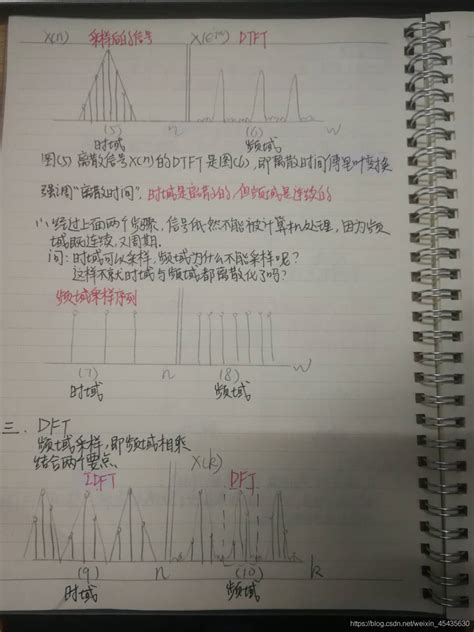 x(n) 采样后的信号 X(e^jw) DTFT
(5) n (6) w
时域 频域
图(5) 离散信号x(n)的DTFT是图(6), 即离散时间傅里叶变换
强调"离散时间", 时域是离散的, 但频域是连续的
经过上面两个步骤, 信号依然不能被计算机处理, 因为频
域既连续, 又周期.
问: 时域可以采样, 频域为什么不能采样呢?
这样不就时域与频域都离散化了吗?
频域采样序列
(7) n (8) w
时域 频域
三. DFT
频域采样, 即频域相乘
结合两个要点
IDFT X(k) DFT
(9) n (10) k
时域 频域
https://blog.csdn.net/weixin_45435630